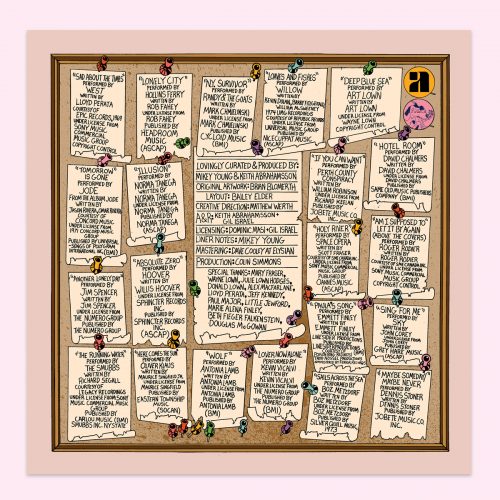 "SAD ABOUT THE TIMES"
PERFORMED BY
WEST
WRITTEN BY
LLOYD PERATA
COURTESY OF
EPIC RECORDS, 1969
UNDER LICENSE FROM
SONY MUSIC
COMMERCIAL
MUSIC GROUP
COPYRIGHT CONTROL
"LONELY CITY"
PERFORMED BY
HOLLINS FERRY
WRITTEN BY
ROB FAHEY
UNDER LICENSE FROM
ROB FAHEY
PUBLISHED BY
HEADROOM
MUSIC
(ASCAP)
"N.Y. SURVIVOR"
PERFORMED BY
RANDY & THE GOATS
WRITTEN BY
MARK CAMOLINSKI
UNDER LICENSE FROM
MARK CAMOLINSKI
PUBLISHED BY
CYCLOID MUSIC
(BMI)
"LOAVES AND FISHES"
PERFORMED BY
WILLOW
WRITTEN BY
UNDER LICENSE FROM
UNIVERSAL
MUSIC GROUP
PUBLISHED BY
MUSIC
(ASCAP)
"DEEP BLUE SEA"
PERFORMED BY
ART LOWN
WRITTEN BY
ART LOWN
UNDER LICENSE FROM
WAYNE LOWN
COPYRIGHT CONTROL
a
"TOMORROW
IS GONE"
PERFORMED BY
JODE
FROM THE ALBUM JODE
WRITTEN BY
COURTESY OF
CONCORD MUSIC
UNDER LICENSE FROM
CONCORD MUSIC
GROUP
PUBLISHED BY UNIVERSAL
SONGS OF POLYGRAM
INTERNATIONAL
(BMI)
"ILLUSION"
PERFORMED BY
NORMA TANEGA
WRITTEN BY
NORMA TANEGA
UNDER LICENSE FROM
NORMA TANEGA
PUBLISHED BY
NORMA TANEGA
(ASCAP)
LOVINGLY CURATED & PRODUCED BY:
MIKEY YOUNG & KEITH ABRAHAMSSON
ORIGINAL ARTWORK: BRIAN BLOMERTH
LAYOUT: BAILEY ELDER
CREATIVE DIRECTION: MATTHEW WERTH
KEITH ABRAHAMSSON +
GIL ISRAEL
LICENSING: DOMINIC MASI + GIL ISRAEL
LINER NOTES: MIKEY YOUNG
MASTERING: DAVE COOLEY OF ELYSIAN
PRODUCTION: COLIN SIMMONS
SPECIAL THANKS: MARY FRASER,
WAYNE LOWN, JULIE LOWN HODGES,
DONALD LOWN, ALEX MACFARLANE,
LLOYD PERATA, JEFF KENNEDY,
PAUL MAJOR, LITTLE JOHNFORD,
MARIE ALENA FINLEY,
BETH FEGER FALKENSTEIN,
DOUGLAS MCGOWAN
"IF YOU CAN WANT"
PERFORMED BY
PERTH COUNTY
CONSPIRACY
WRITTEN BY
WILLIAM ROBINSON
UNDER LICENSE FROM
RICHARD KEELAN
PUBLISHED BY
JOBETE MUSIC CO.
INC.
"HOTEL ROOM"
PERFORMED BY
DAVID CHALMERS
WRITTEN BY
DAVID CHALMERS
UNDER LICENSE FROM
DAVID CHALMERS
PUBLISHED BY
SAME OLD MUSIC PUBLISHERS
COMPANY
(BMI)
"ANOTHER LONELY DAY"
PERFORMED BY
JIM SPENCER
WRITTEN BY
JIM SPENCER
UNDER LICENSE FROM
THE NUMERO GROUP
PUBLISHED BY
THE NUMERO GROUP
"ABSOLUTE ZERO"
PERFORMED BY
HOOVER
WRITTEN BY
WILLIS HOOVER
UNDER LICENSE FROM
SPHINCTER
RECORDS
INC.
PUBLISHED BY
SPHINCTER
RECORDS
INC.
(ASCAP)
"HOLY RIVER"
PERFORMED BY
SPACE OPERA
WRITTEN BY
PUBLISHED BY
OANNES MUSIC
"AM I SUPPOSED TO
LET IT BY AGAIN
(ABOVE THE COVERS)"
PERFORMED BY
ROGER RODIER
WRITTEN BY
ROGER RODIER
PUBLISHED BY
SONY MUSIC PUBLISHING
(SOCAN)
"PAULA'S SONG"
PERFORMED BY
EMMETT FINLEY
WRITTEN BY
EMMETT FINLEY
UNDER LICENSE FROM
PUBLISHED BY
"SING FOR ME"
PERFORMED BY
SKY
WRITTEN BY
JOHN COREY
UNDER LICENSE FROM
SONY MUSIC
COMMERCIAL MUSIC
GROUP
PUBLISHED BY
GREY HARE MUSIC
(ASCAP)
"THE RUNNING WATER"
PERFORMED BY
THE SMUBBS
WRITTEN BY
RICHARD SEGALL
COURTESY OF
LEGACY RECORDINGS
UNDER LICENSE FROM SONY
MUSIC COMMERCIAL MUSIC
GROUP
PUBLISHED BY
CARLOU MUSIC (BMI)
SMUBBS INC. NY STATE
"HERE COMES THE SUN"
PERFORMED BY
OLIVER KLAUS
WRITTEN BY
UNDER LICENSE FROM
PUBLISHED BY
EASTERN TOWNSHIP
MUSIC
(SOCAN)
"WOLF"
PERFORMED BY
ANTONIA LAMB
WRITTEN BY
ANTONIA LAMB
UNDER LICENSE FROM
ANTONIA LAMB
PUBLISHED BY
ANTONIA LAMB
(BMI)
"LOVER NOW ALONE"
PERFORMED BY
KEVIN VICALVI
WRITTEN BY
KEVIN VICALVI
UNDER LICENSE FROM
THE NUMERO GROUP
PUBLISHED BY
THE NUMERO GROUP
(BMI)
"SAILS ACROSS THE SEA"
PERFORMED BY
BOZ METZDORF
WRITTEN BY
BOZ METZDORF
UNDER LICENSE FROM
BOZ METZDORF
PUBLISHED BY
SILVER QUILL MUSIC
1973
"MAYBE SOMEDAY/
MAYBE NEVER"
PERFORMED BY
DENNIS STONER
WRITTEN BY
DENNIS STONER
PUBLISHED BY
JOBETE MUSIC CO.
INC.